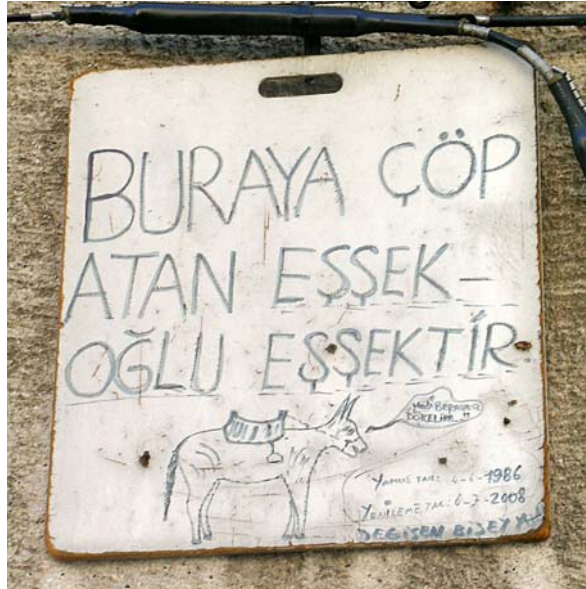 BURAYA ÇÖP
ATAN EŞŞEK-
OĞLU EŞŞEKTİR
HADİ BERABER
DÖKELİM
TAR: 4-6-1986
YENİLEME TAR: 6-7-2008
DEĞİŞEN BİŞEY